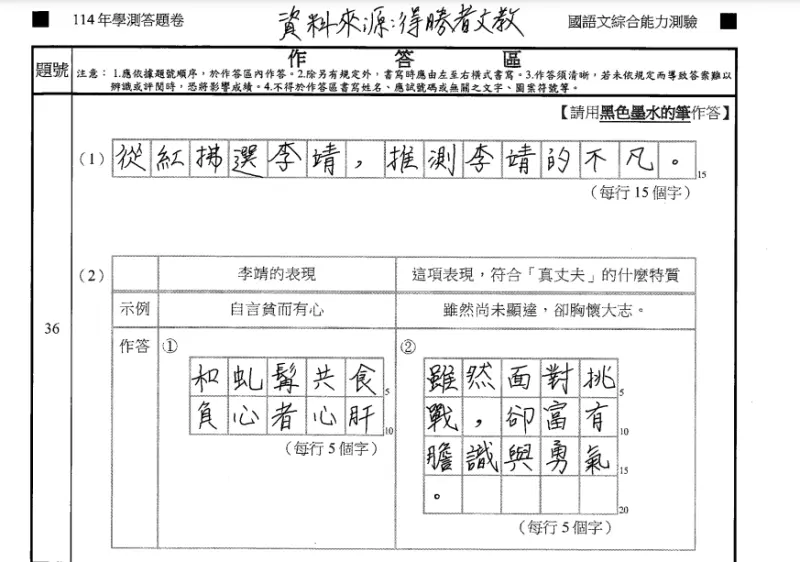 114年學測答題卷 資料來源:得勝者文教 國語文綜合能力測驗
題號 作答區
注意：1.應依據題號順序，於作答區內作答。2.除另有規定外，書寫時應由左至右橫式書寫。3.作答須清晰，若未依規定而導致答案難以
辨識或評閱時，恐將影響成績。4.不得於作答區書寫姓名、應試號碼或無關之文字、圖案符號等。
【請用黑色墨水的筆作答】
(1) 從紅拂選李靖，推測李靖的不凡。 15
(每行15個字)
36
(2) 李靖的表現 這項表現，符合「真丈夫」的什麼特質
示例 自言貧而有心 雖然尚未顯達，卻胸懷大志。
作答 ① ②
和虬髯共食 5
負心者心肝 10
(每行5個字)
雖然面對挑 5
戰，卻富有 10
膽識與勇氣 15
。 20
(每行5個字)